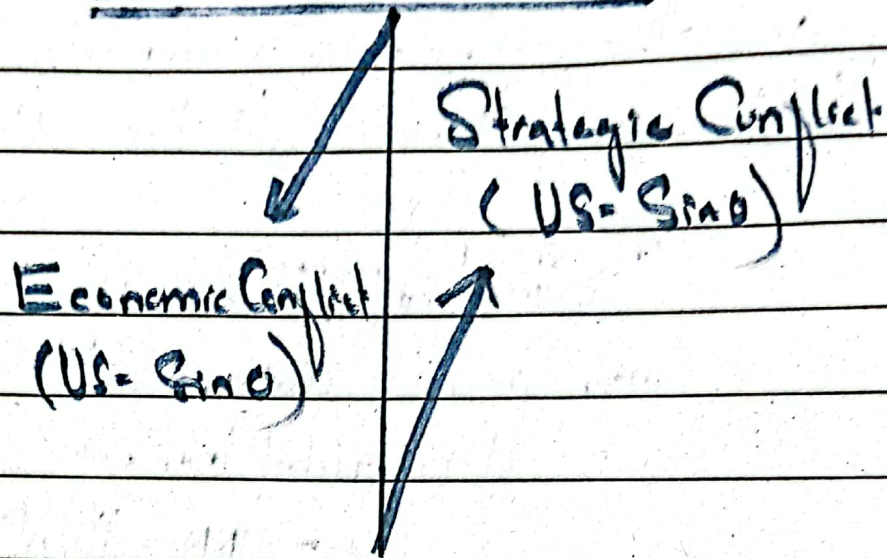 Strategic Conflict
(US-Sino)
Economic Conflict
(US-Sino)